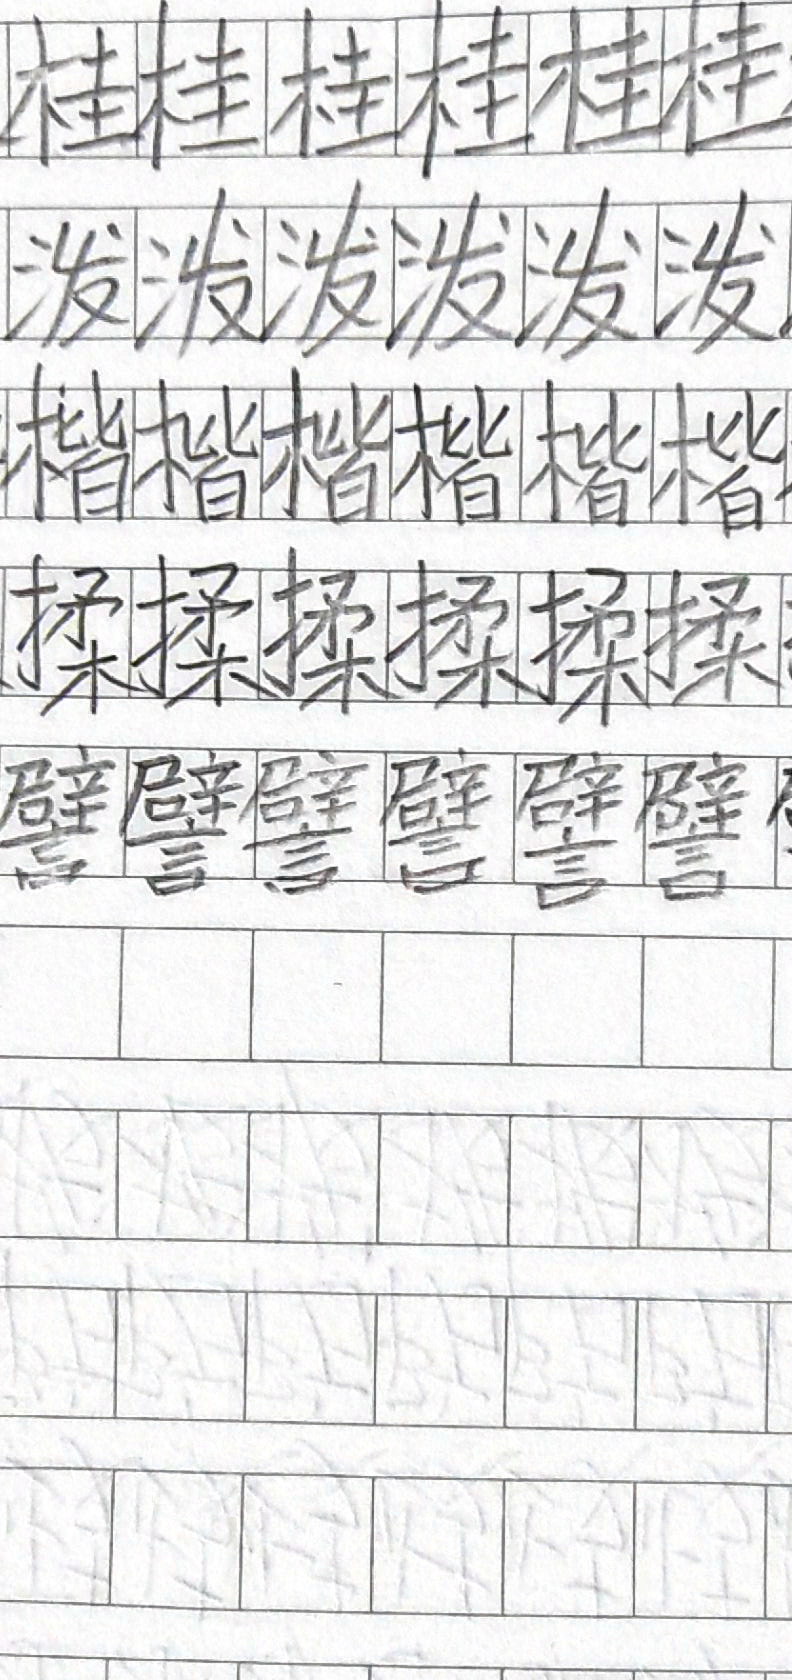 桂桂桂桂桂桂
泼泼泼泼泼泼
楷楷楷楷楷楷
揉揉揉揉揉揉
譬譬譬譬譬譬